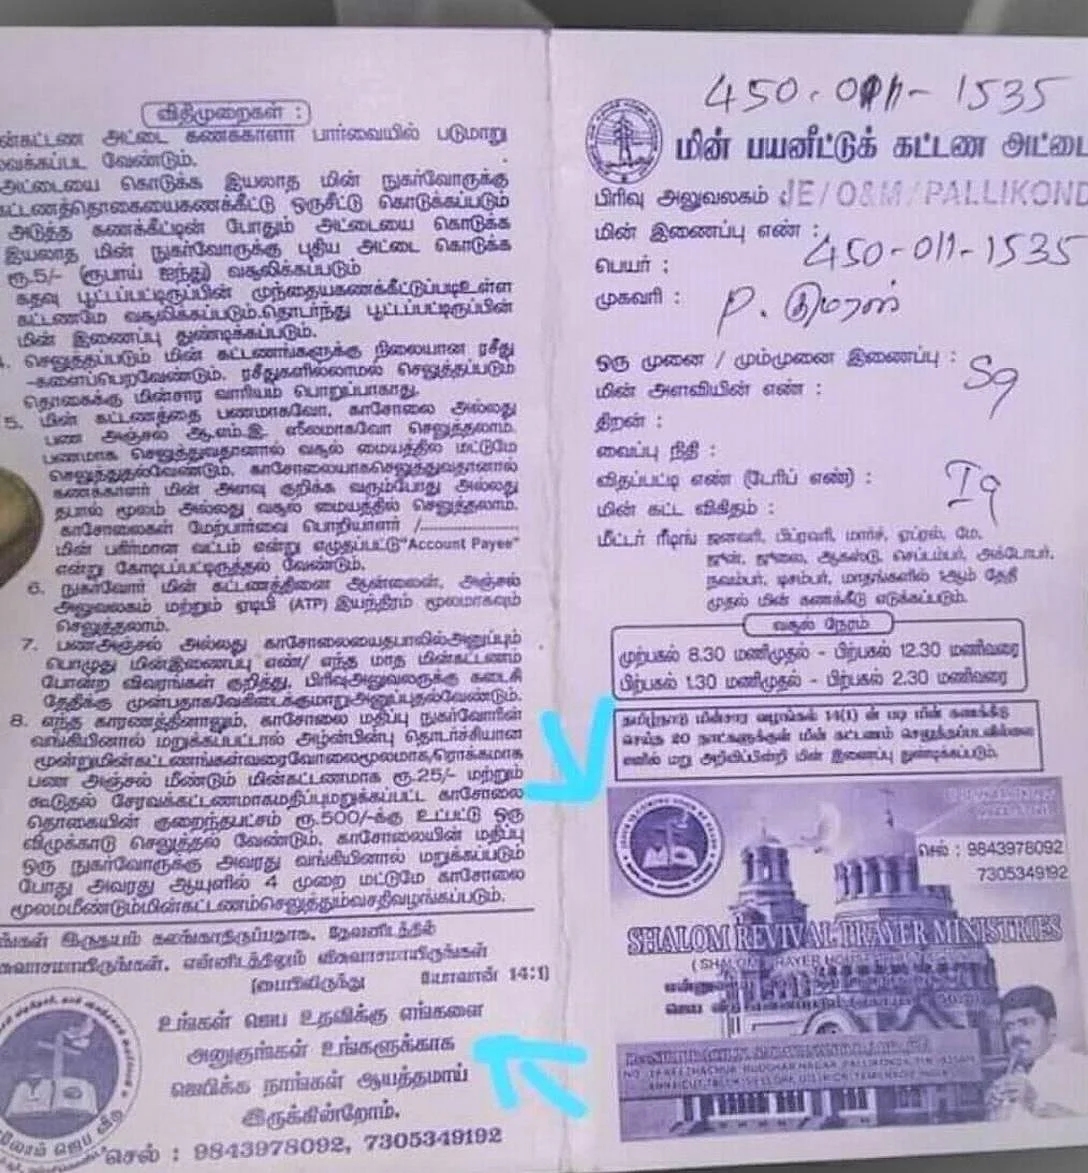 விதிமுறைகள் :
அட்டை கணக்காளர் பார்வையில் படுமாறு
வேண்டும்.
அட்டையை கொடுக்க இயலாத மின் நுகர்வோருக்கு
ஒருசீட்டு கொடுக்கப்படும்
அடுத்த கணக்கீட்டின் போதும் அட்டையை கொடுக்க
இயலாத மின் நுகர்வோருக்கு புதிய அட்டை கொடுக்க
ரூ.5/- (ரூபாய் ஐந்து) வசூலிக்கப்படும்
கதவு பூட்டப்பட்டிருப்பின் முந்தையகணக்கீட்டுப்படிஉள்ள
கட்டணமே வசூலிக்கப்படும்.தொடர்ந்து பூட்டப்பட்டிருப்பின்
மின் இணைப்பு துண்டிக்கப்படும்.
செலுத்தப்படும் மின் கட்டணங்களுக்கு நிலையான ரசீது
-களைப்பெறவேண்டும். ரசீதுகளில்லாமல் செலுத்தப்படும்
தொகைக்கு மின்சார வாரியம் பொறுப்பாகாது.
5. மின் கட்டணத்தை பணமாகவோ, காசோலை அல்லது
பண அஞ்சல் ஆ.எம்.இ. ஸீலமாகவோ செலுத்தலாம்.
பணமாக செலுத்துவதானால் வசூல் மையத்தில் மட்டுமே
செலுத்துதல்வேண்டும். காசோலையாகசெலுத்துவதானால்
கணக்காளர் மின் அளவு குறிக்க வரும்போது அல்லது
தபால் மூலம் அல்லது வசூல் மையத்தில் செலுத்தலாம்.
காசோலைகள் மேற்பார்வை பொறியாளர் /
மின் பகிர்மான வட்டம் என்று எழுதப்பட்டு "Account Payee"
என்று கோடிடப்பட்டிருத்தல் வேண்டும்.
6. நுகர்வோர் மின் கட்டணத்தினை ஆன்லைன், அஞ்சல்
அலுவலகம் மற்றும் ஏடிபி (ATP) இயந்திரம் மூலமாகவும்
செலுத்தலாம்.
7. பணஅஞ்சல் அல்லது காசோலையைதபாலில்அனுப்பும்
பொழுது மின்இணைப்பு எண்/ எந்த மாத மின்கட்டணம்
போன்ற விவரங்கள் குறித்து, பிரிவுஅலுவலருக்கு கடைசி
தேதிக்கு முன்பதாகவேகிடைக்குமாறுஅனுப்புதல்வேண்டும்.
8. எந்த காரணத்தினாலும், காசோலை மதிப்பு நுகர்வோரின்
வங்கியினால் மறுக்கப்பட்டால் அதன்பின்பு தொடர்ச்சியான
மூன்றுமின்கட்டணங்கள்வரைவோலைமூலமாக/ரொக்கமாக
பண அஞ்சல் மீண்டும் மின்கட்டணமாக ரூ.25/- மற்றும்
கூடுதல் சேரவக்கட்டணமாகமதிப்புமறுக்கப்பட்ட காசோலை
தொகையின் குறைந்தபட்சம் ரூ.500/-க்கு உட்பட்டு ஒரு
விழுக்காடு செலுத்தல் வேண்டும். காசோலையின் மதிப்பு
ஒரு நுகர்வோருக்கு அவரது வங்கியினால் மறுக்கப்படும்
போது அவரது ஆயுளில் 4 முறை மட்டுமே காசோலை
மூலம்மீண்டும்மின்கட்டணம்செலுத்தும்வசதிவழங்கப்படும்.
இருதயம் கலங்காதிருப்பதாக, தேவனிடத்தில்
என்னிடத்திலும் விசுவாசமாயிருங்கள்
(பைபிலிருந்து யோவான் 14:1)
உங்கள் ஜெப உதவிக்கு எங்களை
அனுகுங்கள் உங்களுக்காக
ஜெபிக்க நாங்கள் ஆயத்தமாய்
இருக்கின்றோம்.
செல் : 9843978092, 7305349192
450-011-1535
மின் பயனீட்டுக் கட்டண அட்டை
பிரிவு அலுவலகம் : JE/O&M/PALLIKOND
மின் இணைப்பு எண் : 450-011-1535
பெயர் :
முகவரி : P. குமரன்
ஒரு முனை / மும்முனை இணைப்பு :
மின் அளவியின் எண் :
திறன் :
வைப்பு நிதி :
விதப்பட்டி எண் (டேரிப் எண்) :
மின் கட்ட விகிதம் :
மீட்டர் ரீடிங் ஜனவரி, பிப்ரவரி, மார்ச், ஏப்ரல், மே,
ஜூன், ஜூலை, ஆகஸ்டு, செப்டம்பர், அக்டோபர்,
நவம்பர், டிசம்பர், மாதங்களில் 1ஆம் தேதி
முதல் மின் கணக்கீடு எடுக்கப்படும்.
வசூல் நேரம்
முற்பகல் 8.30 மணிமுதல் - பிற்பகல் 12.30 மணிவரை
பிற்பகல் 1.30 மணிமுதல் - பிற்பகல் 2.30 மணிவரை
தமிழ்நாடு மின்சார வழங்கல் 14(1) ன் படி மின் கணக்கீடு
செய்த 20 நாட்களுக்குள் மின் கட்டணம் செலுத்தப்படவில்லை
எனில் மறு அறிவிப்பின்றி மின் இணைப்பு துண்டிக்கப்படும்.
செல் : 9843978092
7305349192
SHALOM REVIVAL PRAYER MINISTRIES